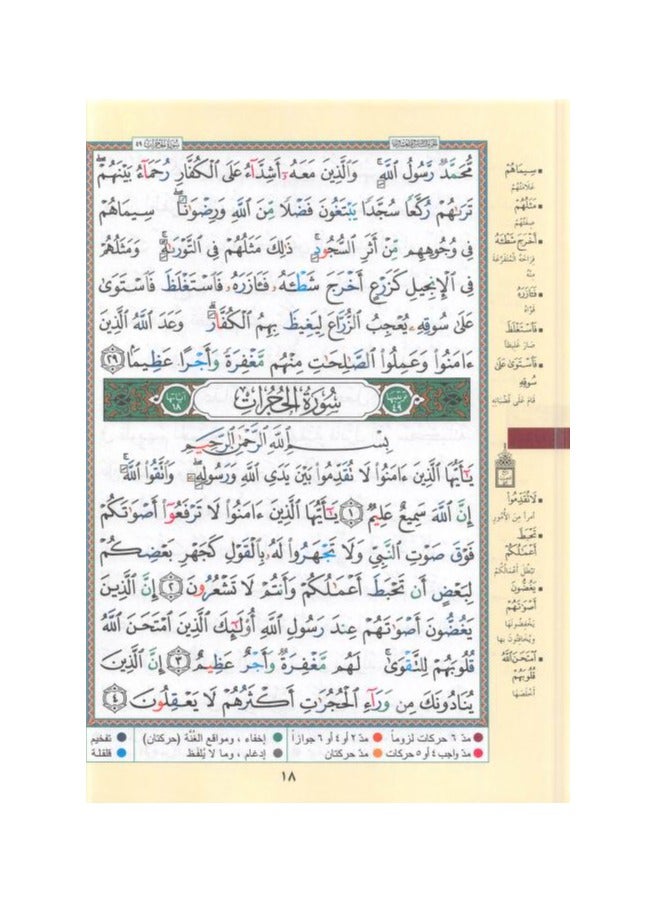 سورة الحجرات ٤٩
مُّحَمَّدٌ رَّسُولُ ٱللَّهِ ۚ وَٱلَّذِينَ مَعَهُۥٓ أَشِدَّآءُ عَلَى ٱلْكُفَّارِ رُحَمَآءُ بَيْنَهُمْ ۖ
تَرَىٰهُمْ رُكَّعًا سُجَّدًا يَبْتَغُونَ فَضْلًا مِّنَ ٱللَّهِ وَرِضْوَٰنًا ۖ سِيمَاهُمْ
فِى وُجُوهِهِم مِّنْ أَثَرِ ٱلسُّجُودِ ۚ ذَٰلِكَ مَثَلُهُمْ فِى ٱلتَّوْرَىٰةِ ۚ وَمَثَلُهُمْ
فِى ٱلْإِنجِيلِ كَزَرْعٍ أَخْرَجَ شَطْـَٔهُۥ فَـَٔازَرَهُۥ فَٱسْتَغْلَظَ فَٱسْتَوَىٰ
عَلَىٰ سُوقِهِۦ يُعْجِبُ ٱلزُّرَّاعَ لِيَغِيظَ بِهِمُ ٱلْكُفَّارَ ۗ وَعَدَ ٱللَّهُ ٱلَّذِينَ
ءَامَنُوا۟ وَعَمِلُوا۟ ٱلصَّٰلِحَٰتِ مِنْهُم مَّغْفِرَةً وَأَجْرًا عَظِيمًۢا ٢٩
ترتيبها ٤٩ سُورَةُ الحُجُرَاتِ آياتها ١٨
بِسْمِ ٱللَّهِ ٱلرَّحْمَٰنِ ٱلرَّحِيمِ
يَٰٓأَيُّهَا ٱلَّذِينَ ءَامَنُوا۟ لَا تُقَدِّمُوا۟ بَيْنَ يَدَىِ ٱللَّهِ وَرَسُولِهِۦ ۖ وَٱتَّقُوا۟ ٱللَّهَ ۚ
إِنَّ ٱللَّهَ سَمِيعٌ عَلِيمٌ ١ يَٰٓأَيُّهَا ٱلَّذِينَ ءَامَنُوا۟ لَا تَرْفَعُوٓا۟ أَصْوَٰتَكُمْ
فَوْقَ صَوْتِ ٱلنَّبِىِّ وَلَا تَجْهَرُوا۟ لَهُۥ بِٱلْقَوْلِ كَجَهْرِ بَعْضِكُمْ
لِبَعْضٍ أَن تَحْبَطَ أَعْمَٰلُكُمْ وَأَنتُمْ لَا تَشْعُرُونَ ٢ إِنَّ ٱلَّذِينَ
يَغُضُّونَ أَصْوَٰتَهُمْ عِندَ رَسُولِ ٱللَّهِ أُو۟لَٰٓئِكَ ٱلَّذِينَ ٱمْتَحَنَ ٱللَّهُ
قُلُوبَهُمْ لِلتَّقْوَىٰ ۚ لَهُم مَّغْفِرَةٌ وَأَجْرٌ عَظِيمٌ ٣ إِنَّ ٱلَّذِينَ
يُنَادُونَكَ مِن وَرَآءِ ٱلْحُجُرَٰتِ أَكْثَرُهُمْ لَا يَعْقِلُونَ ٤
سِيمَاهُمْ
عَلَامَتُهُمْ
مَثَلُهُمْ
صِفَتُهُمْ
أَخْرَجَ شَطْـَٔهُ
فِرَاخَهُ الْمُتَفَرِّعَةَ
مِنْهُ
فَـَٔازَرَهُ
قَوَّاهُ
فَٱسْتَغْلَظَ
صَارَ غَلِيظًا
فَٱسْتَوَىٰ عَلَىٰ
سُوقِهِ
قَامَ عَلَى قُضْبَانِهِ
لَا تُقَدِّمُوا۟
أمرًا مِنَ الأُمُورِ
تَحْبَطَ
أَعْمَٰلُكُمْ
تَبْطُلَ أَعْمَالُكُمْ
يَغُضُّونَ
أَصْوَٰتَهُمْ
يَخْفِضُونَهَا
وَيُخَافِتُونَ بِهَا
ٱمْتَحَنَ ٱللَّهُ
قُلُوبَهُمْ
أَخْلَصَهَا
مدّ ٦ حركات لزوماً مدّ ٢ أو ٤ أو ٦ جوازاً إخفاء ، ومواقع الغُنَّة (حركتان) تفخيم
مدّ واجب ٤ أو ٥ حركات مدّ حركتان إدغام ، وما لا يُلفَظ قلقلة
١٨